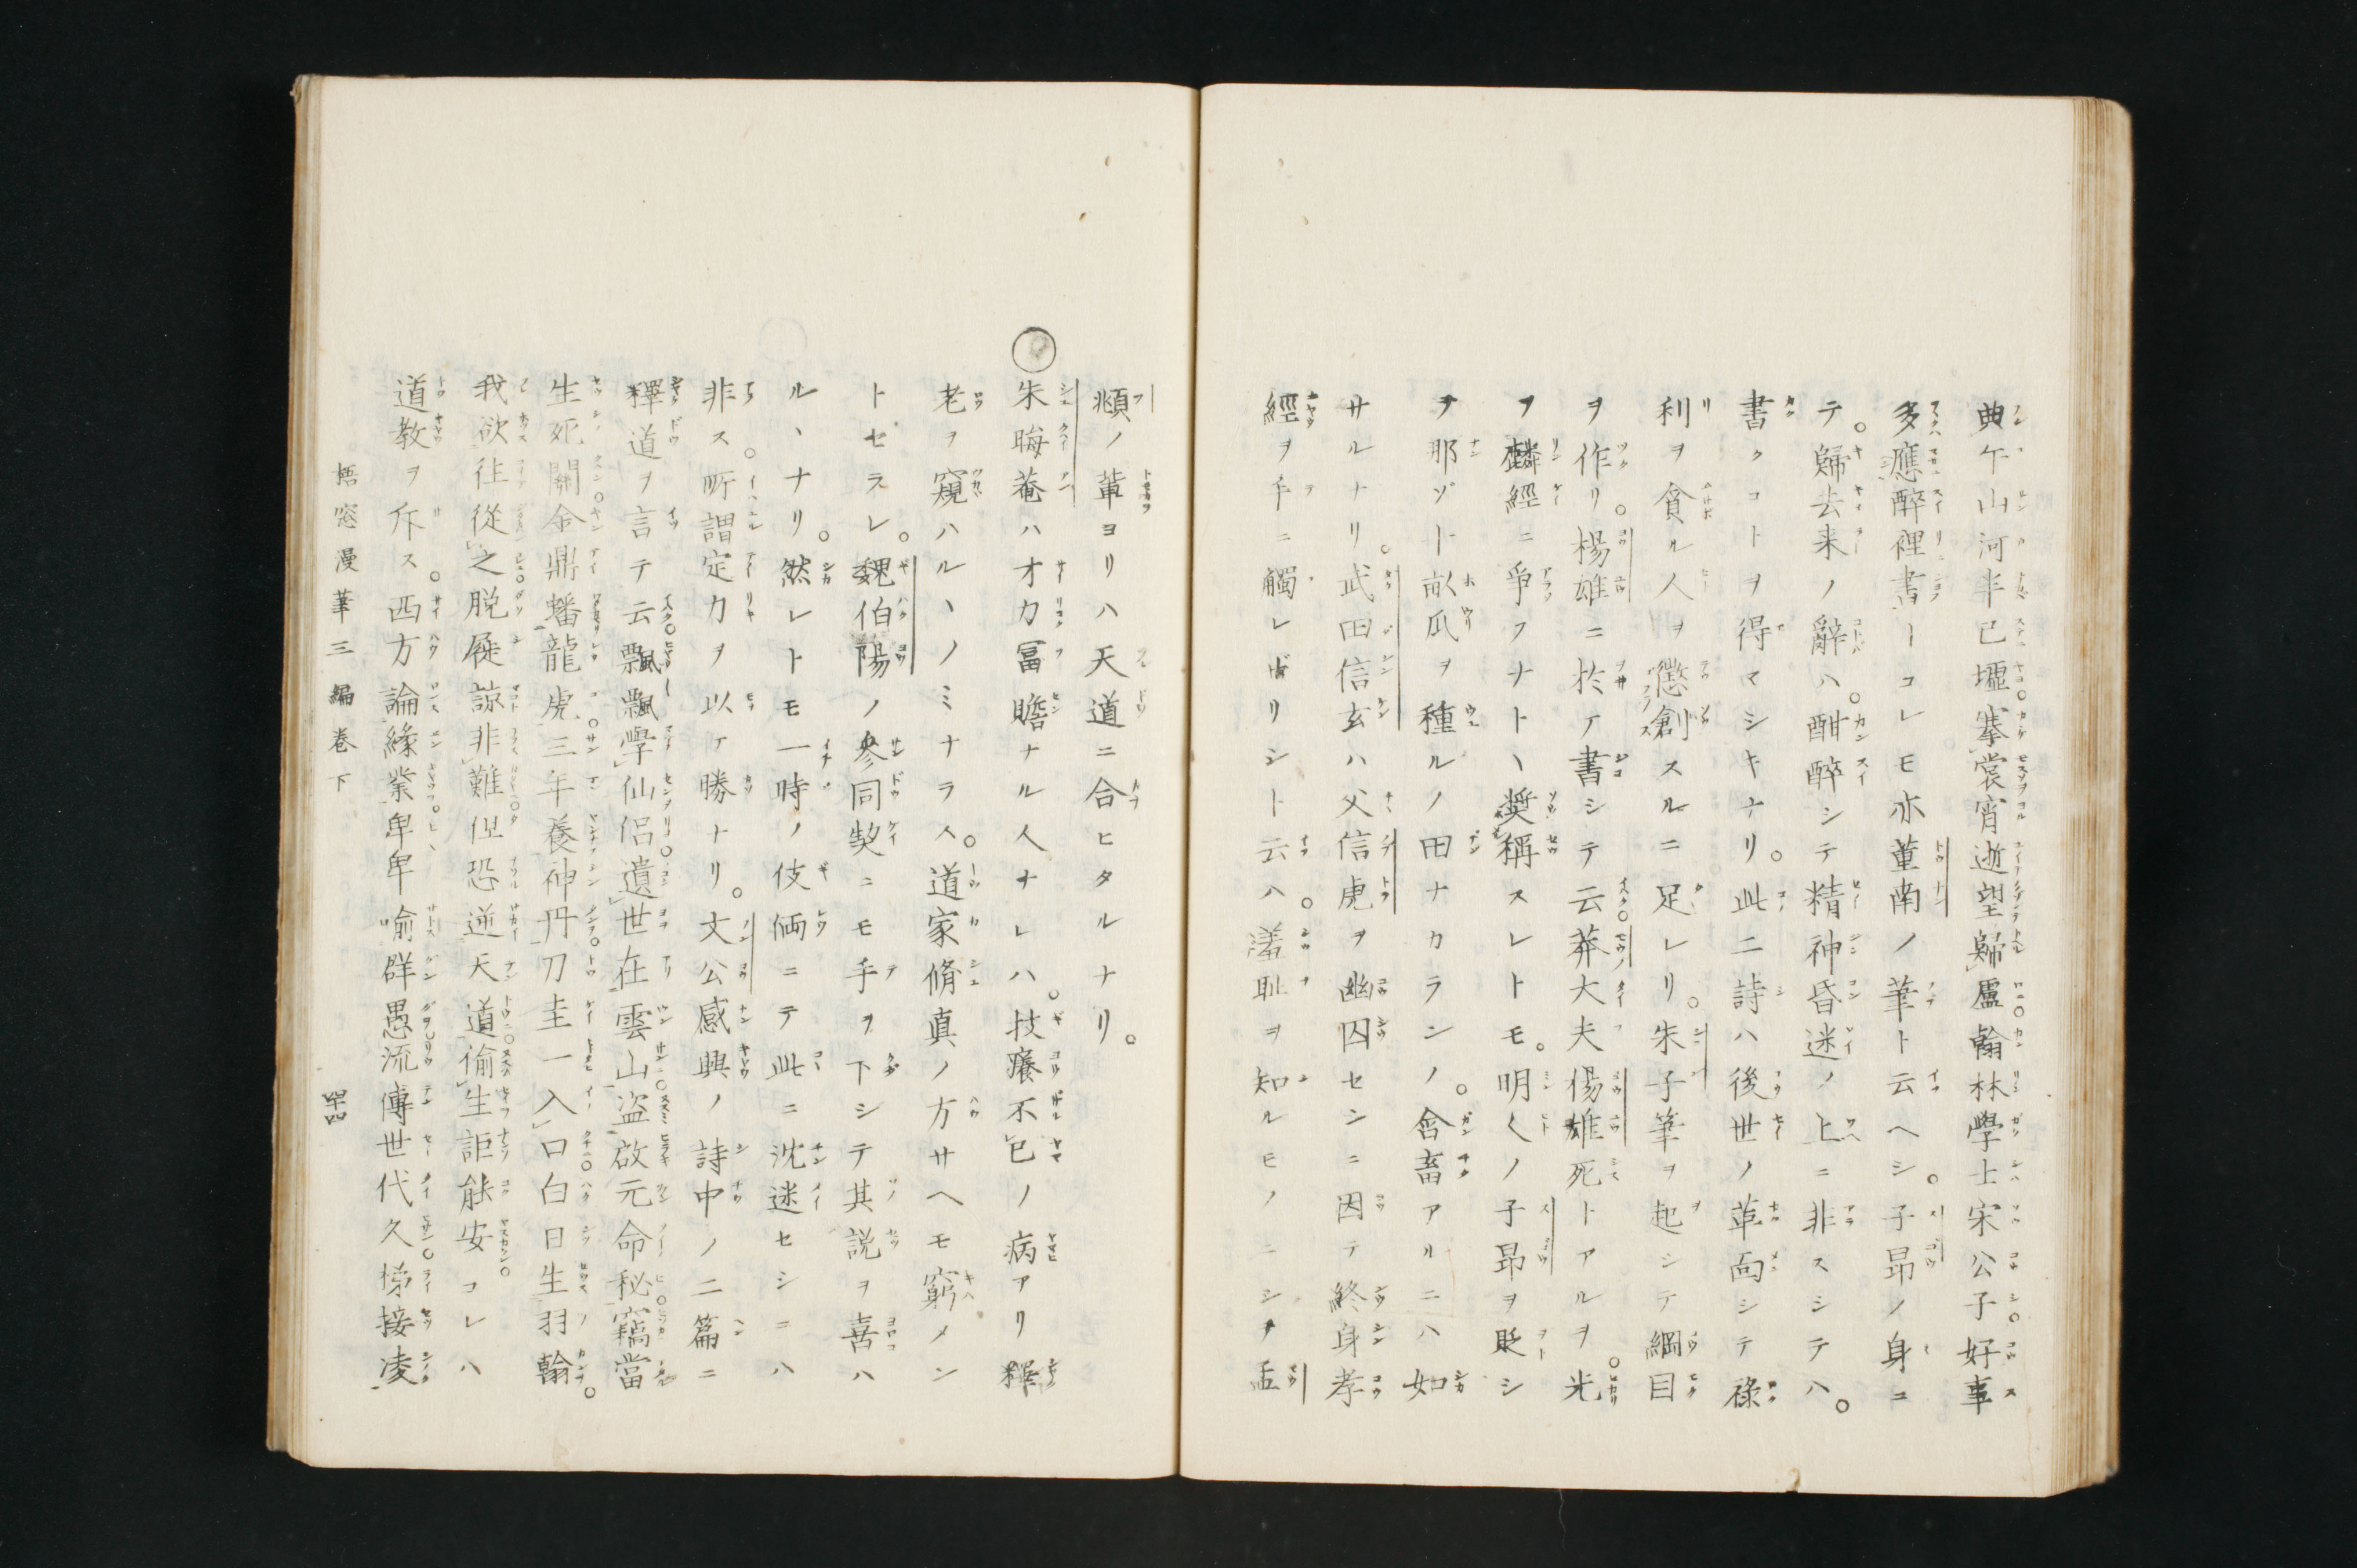 典午山河半已墟蹇裳宵逝望歸盧翰林學士宋公子好事
多應醉裡書ーコレモ亦董南ノ筆ト云ヘシ。子昂ノ身ニ
テ。歸去来ノ辭ハ。酣醉シテ精神昏迷ノ上ニ非スシテハ。
書クコトヲ得マシキナリ。此二詩ハ後世ノ革面シテ祿
利ヲ貪ル人ヲ懲創スルニ足レリ。朱子筆ヲ起シテ綱目
ヲ作リ。楊雄ニ於テ書シテ云莽大夫楊雄死トアルヲ。光
ヲ麟經ニ爭フナト、奨稱スレトモ。明人ノ子昂ヲ貶シ
ヲ那ゾト畝瓜ヲ種ルノ田ナカランノ。含畜アルニハ如
サルナリ。武田信玄ハ父信虎ヲ幽囚セシニ因テ終身孝
經ヲ手ニ觸レザリシト云ハ。羞耻ヲ知ルモノニシテ孟
頫ノ輩ヨリハ天道ニ合ヒタルナリ。
朱晦菴ハオカ冨贍ナル人ナレハ。技癢不已ノ病アリ釋
老ヲ窺ハル丶ノミナラス。道家脩真ノ方サヘモ窮メン
トセラレ。魏伯陽ノ參同契ニモ手ヲ下シテ其説ヲ喜ハ
ル丶ナリ。然レトモ一時ノ伎倆ニテ此ニ沈迷セシニハ
非ス。所謂定力ヲ以テ勝ナリ。文公感興ノ詩中ノ二篇ニ
釋道ヲ言テ云飄飄學仙侶遺世在雲山盗啟元命秘竊當
生死關金鼎蟠龍虎三年養神丹刀圭一入口白日生羽翰。
我欲往從之脱屣諒非難但恐逆天道偷生詎能安コレハ
道教ヲ斥ス。西方論緣業卑卑喻群愚流傳世代久梯接凌
梧窓漫筆三編卷下 四十四